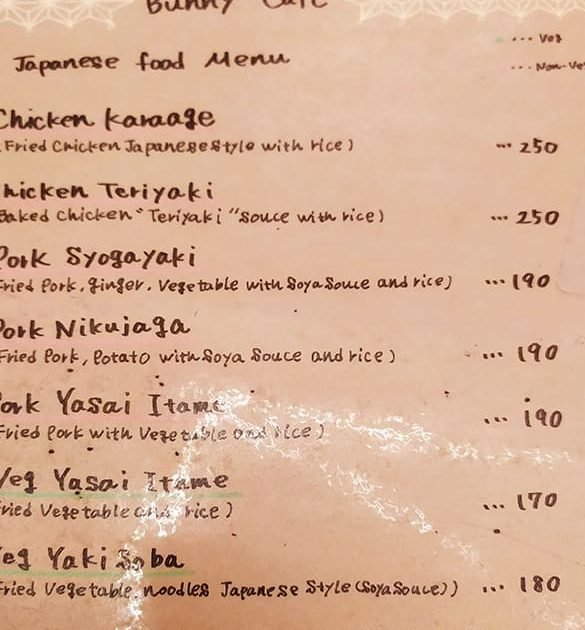 Bunny Cafe
... Veg
Japanese food Menu
... Non-Ve
Chicken Karaage
(Fried Chicken Japanese Style with rice) ... 250
Chicken Teriyaki
Baked Chicken "Teriyaki" Souce with rice) ... 250
Pork Syogayaki
Fried Pork, ginger, Vegetable with Soya Souce and rice) ... 190
Pork Nikujaga
Fried Pork, Potato with Soya Souce and rice) ... 190
Pork Yasai Itame
Fried Pork with Vegetable and rice) ... 190
Veg Yasai Itame
Fried Vegetable and rice) ... 170
Veg Yaki Soba
Fried Vegetable noodles Japanese Style (Soya Souce)) ... 180